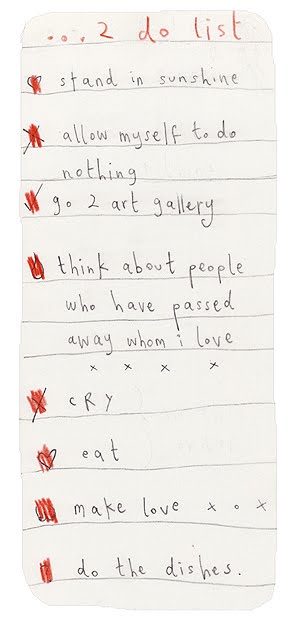 ...2 do list
stand in sunshine
allow myself to do
nothing
go 2 art gallery
think about people
who have passed
away whom i love
x x x x
cRy
eat
make love x o x
do the dishes.